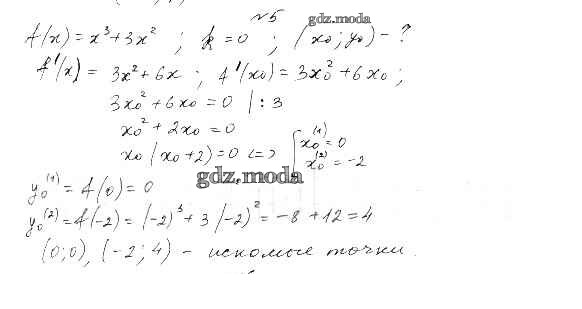 №5
gdz.moda
f(x) = x³ + 3x² ; k = 0 ; (x₀; y₀) - ?
f'(x) = 3x² + 6x ; f'(x₀) = 3x₀² + 6x₀ ;
3x₀² + 6x₀ = 0 | : 3
x₀² + 2x₀ = 0
x₀(x₀+2) = 0 <=> [ x₀⁽¹⁾ = 0
x₀⁽²⁾ = -2
gdz.moda
y₀⁽¹⁾ = f(0) = 0
y₀⁽²⁾ = f(-2) = (-2)³ + 3(-2)² = -8 + 12 = 4
(0;0), (-2; 4) - искомые точки.